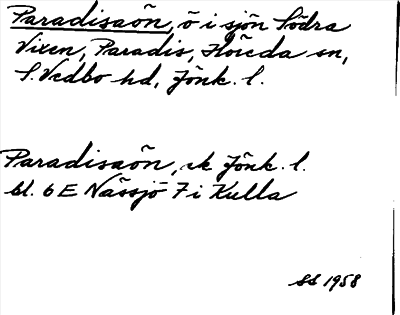 Paradisaön, ö i sjön Södra
Vixen, Paradis, Höreda sn,
S. Vedbo hd, Jönk. l.
Paradisaön, ek Jönk. l.
bl. 6 E Nässjö 7 i Kulla
SS 1958